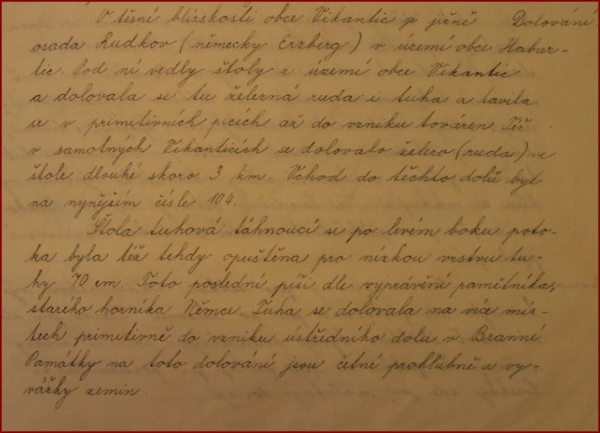 V těsné blízskosti obce Vikantic je jižně Dolování
osada Rudkov (německy Erzberg) v území obce Habar-
tic. Pod ní vedly štoly z území obce Vikantic
a dolovala se tu železná ruda i tuha a tavila
se v primitivních pecích až do vzniku továren. Též
v samotných Vikanticích se dolovalo železo (ruda) ve
štole dlouhé skoro 3 km. Vchod do těchto dolů byl
na nynějším čísle 104.
Štola tuhová táhnoucí se po levém boku poto-
ka byla též tehdy opuštěna pro nízkou vrstvu tu-
hy 70 cm. Toto poslední píši dle vyprávění pamětníka,
starého horníka Němce. Tuha se dolovala na více mís-
tech primitivně do vzniku ústředního dolu v Branné.
Památky na toto dolování jsou četné prohlubně a vy-
vážky zemin.